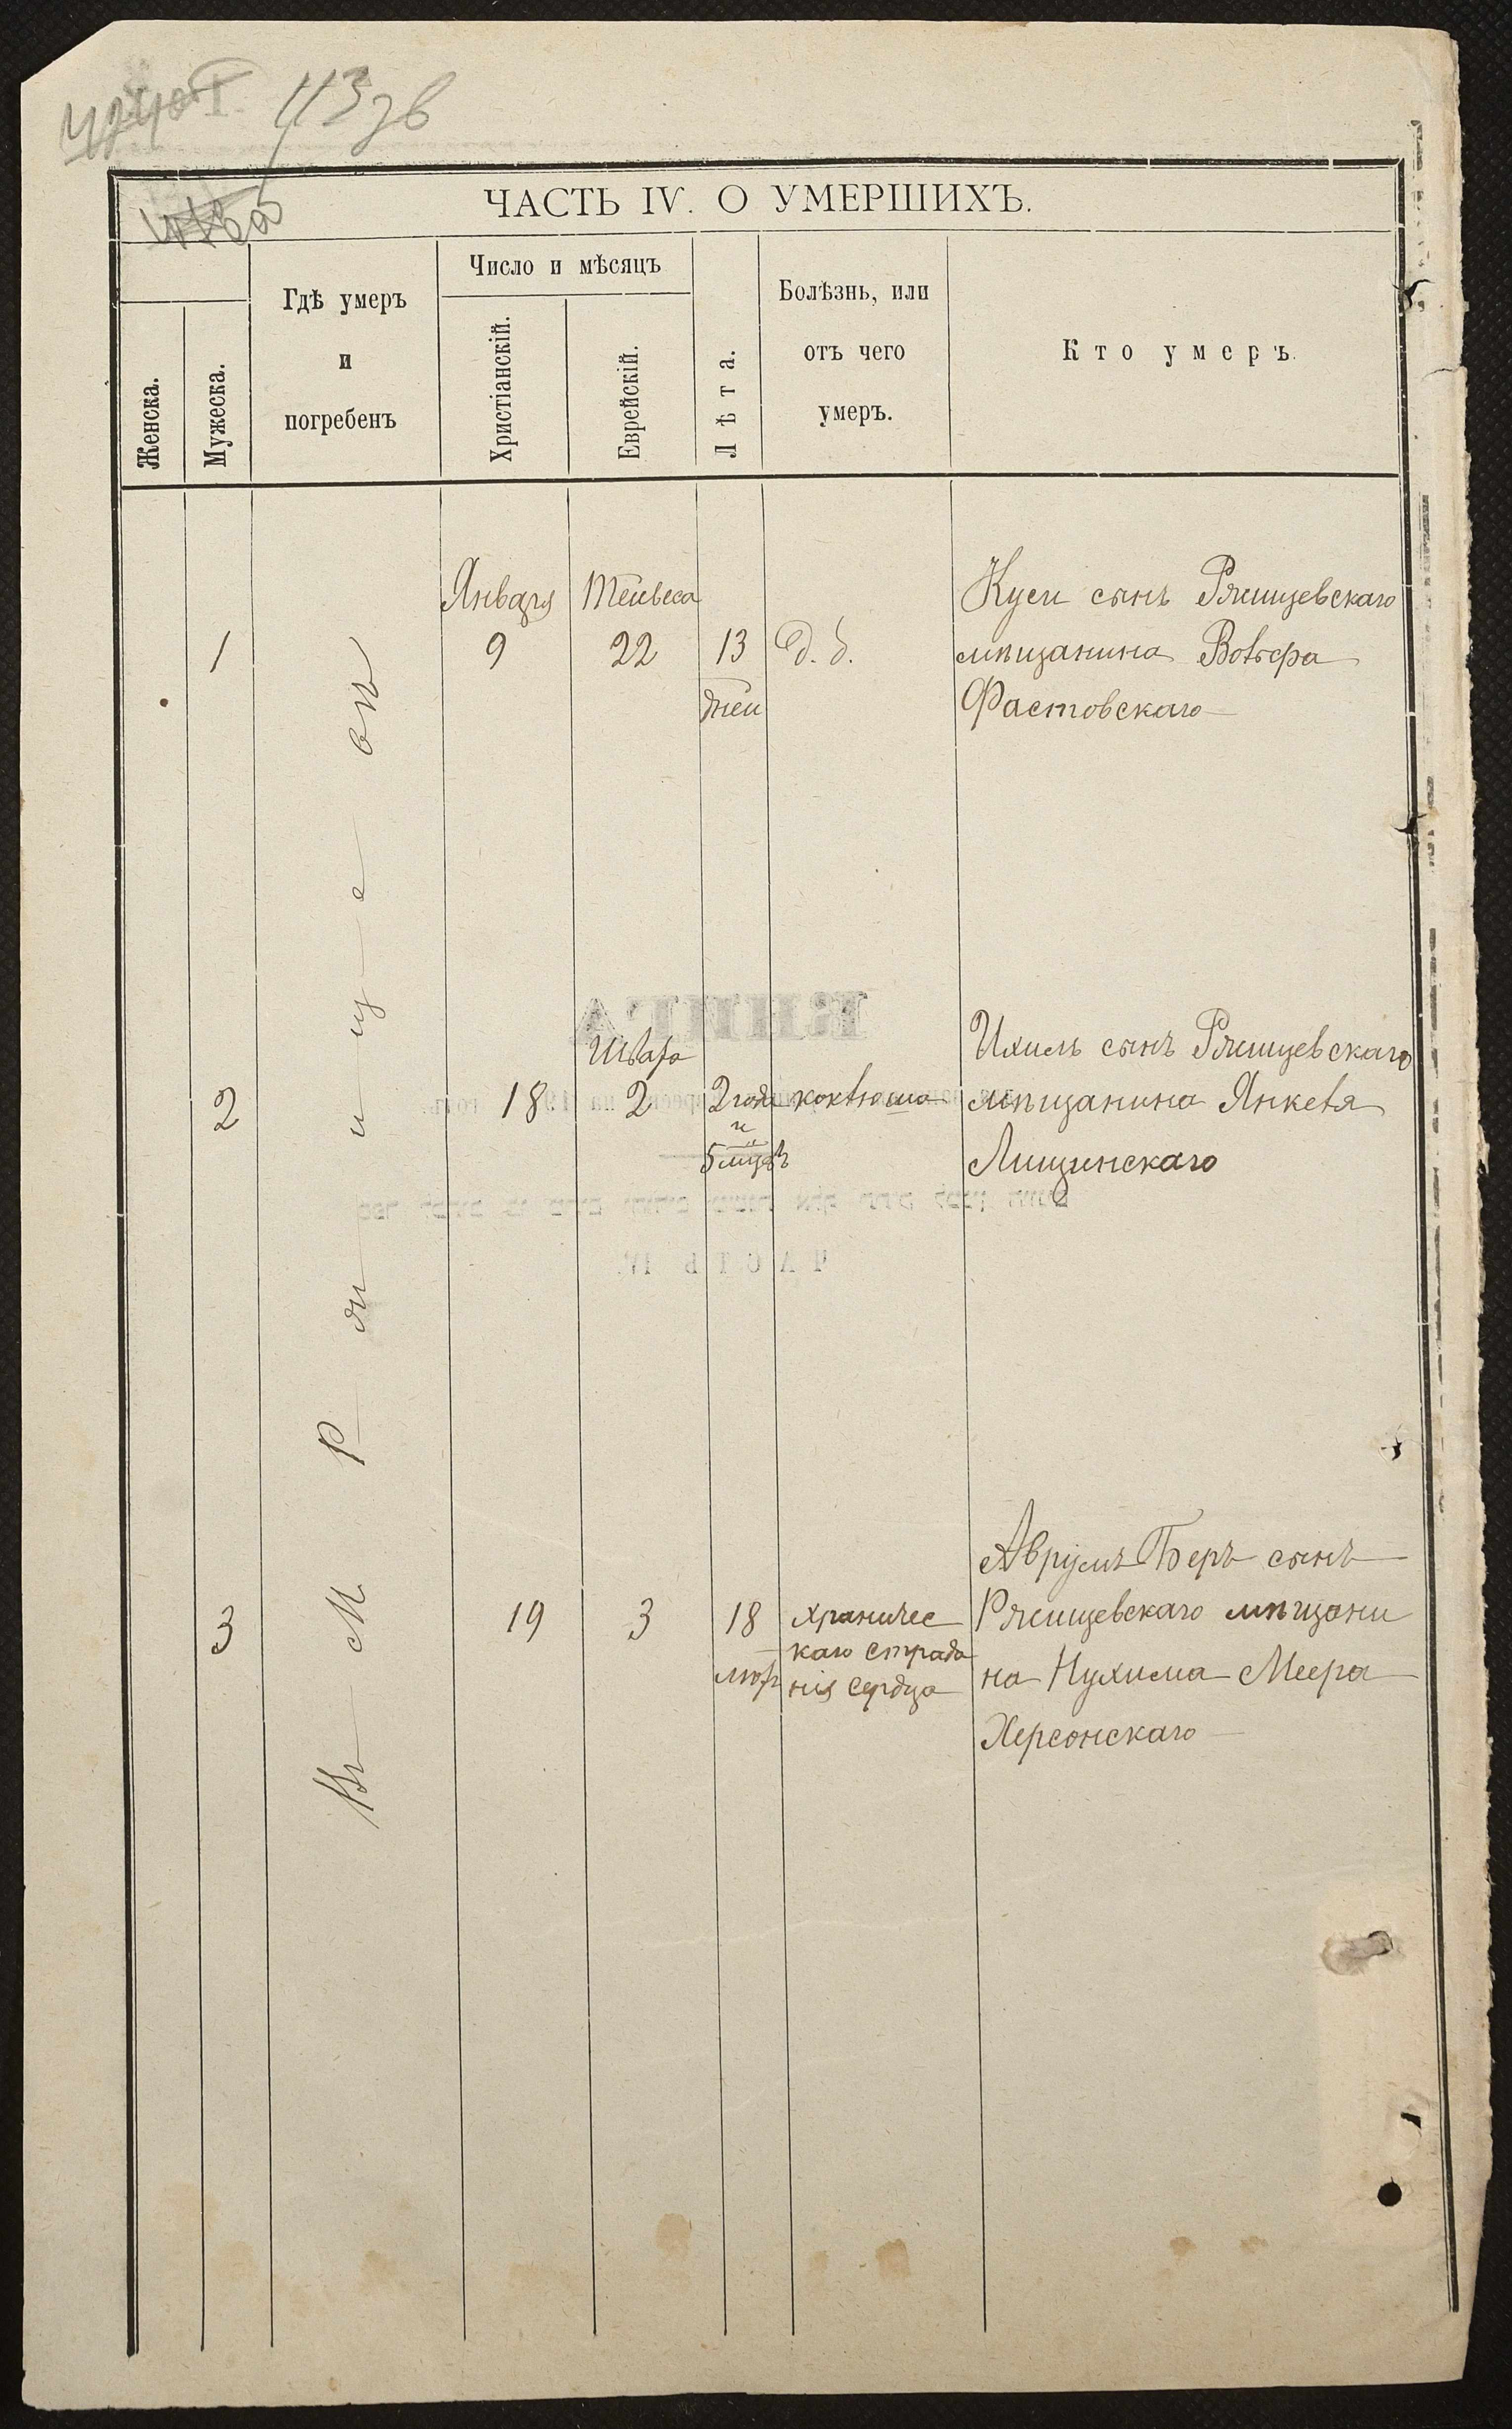 43 зв
ЧАСТЬ IV. О УМЕРШИХЪ.
Женска.
Мужеска.
Гдѣ умеръ
и
погребенъ
Число и мѣсяцъ
Христіанскій.
Еврейскій.
Лѣта.
Болѣзнь, или
отъ чего
умеръ.
Кто умеръ.
Въ М Ржищевѣ
Января
Тейвеса
1
9
22
13
дней
Д. б.
Куси сынъ Ржищевскаго
мѣщанина Вольфа
Фастовскаго
Швата
2
18
2
2 года
и
5 мцвъ
коклюша
Ихиль сынъ Ржищевскаго
мѣщанина Янкеля
Лищинскаго
3
19
3
18
лѣтъ
храничес
каго страда
нія сердца
Аврумъ Беръ сынъ
Ржищевскаго мѣщани
на Нухима Меера
Херсонскаго
КНИГА
ЧАСТЬ IV.